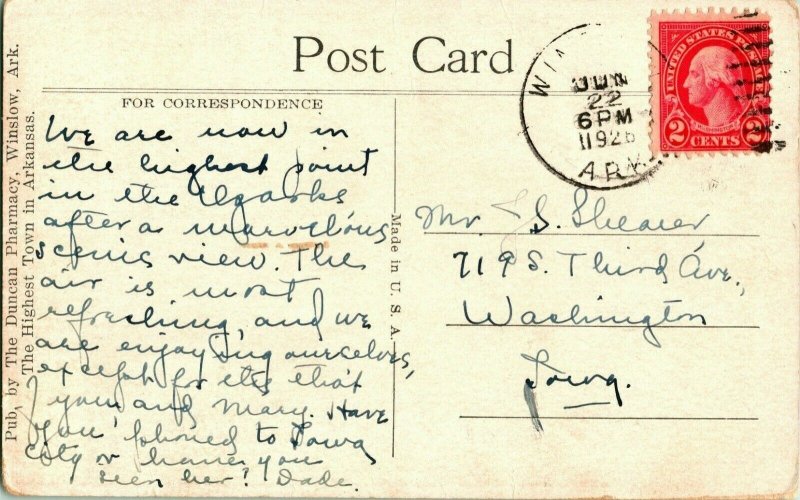 Post Card
FOR CORRESPONDENCE
Pub. by The Duncan Pharmacy, Winslow, Ark.
The Highest Town in Arkansas.
We are now in
the highest point
in the Ozarks
after a marvelous
scenic view. The
air is most
refreshing, and we
are enjoying ourselves,
except for this that
you and Mary. Have
you phoned to Iowa
City or have you
seen her? Dade.
Made in U. S. A.
WIN
JUN
22
6 PM
1926
ARK
UNITED STATES POSTAGE
WASHINGTON
2 CENTS 2
Mr. S. Shearer
719 S. Third Ave.,
Washington
Iowa.